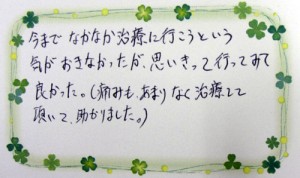 今まで なかなか治療に行こうという
気がおきなかったが、思いきって行ってみて
良かった。(痛みも、あまりなく治療して
頂いて、助かりました。)